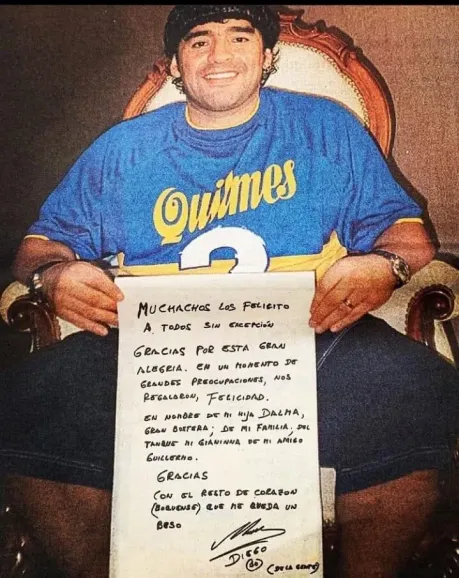 Quilmes
2
MUCHACHOS LOS FELICITO
A TODOS SIN EXCEPCIÓN
GRACIAS POR ESTA GRAN
ALEGRIA. EN UN MOMENTO DE
GRANDES PREOCUPACIONES, NOS
REGALARON, FELICIDAD.
EN NOMBRE DE MI HIJA DALMA,
GRAN BOSTERA; DE MI FAMILIA, DEL
TANQUE MI GIANINNA DE MI AMIGO
GUILLERMO.
GRACIAS
CON EL RESTO DE CORAZON
(BOQUENSE) QUE ME QUEDA UN
BESO
DIEGO
(10)
(DE LA GENTE)